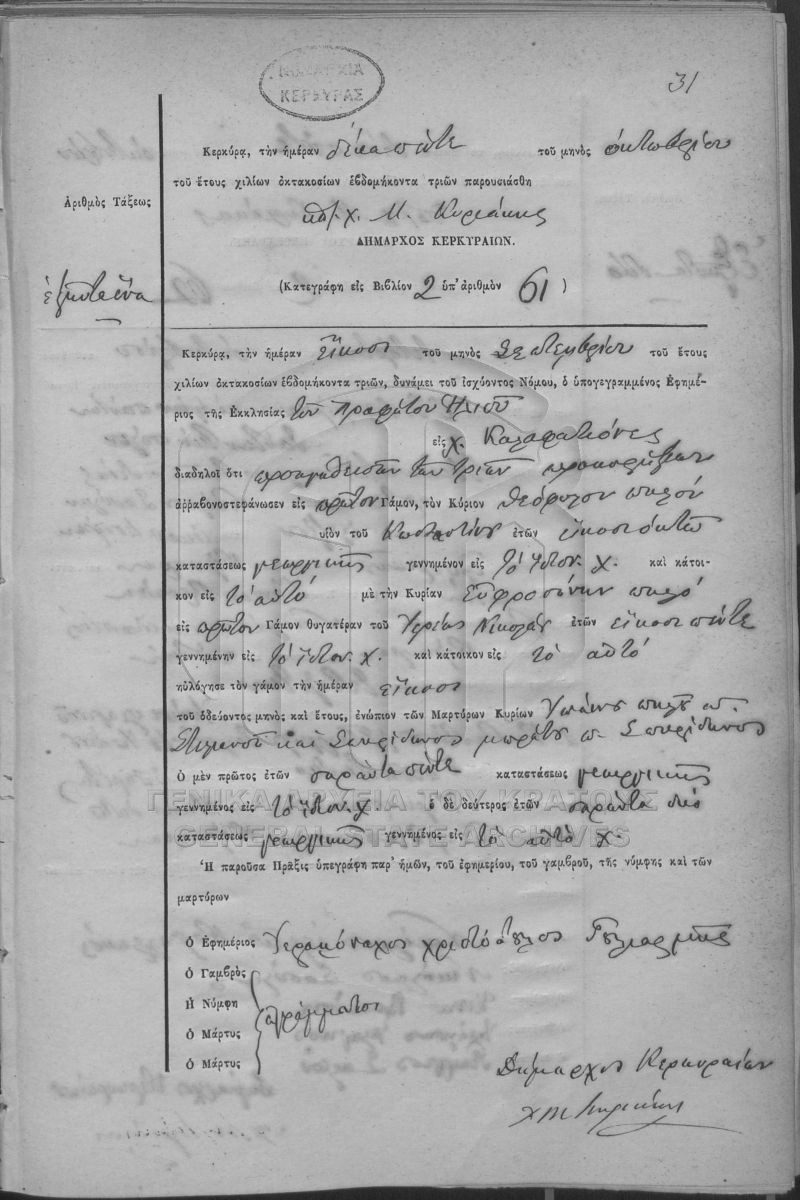 ΔΗΜΑΡΧΙΑ
ΚΕΡΚΥΡΑΣ
31
Κερκύρᾳ, τὴν ἡμέραν δέκα πέντε τοῦ μηνὸς ὀκτωβρίου
τοῦ ἔτους χιλίων ὀκτακοσίων ἑβδομήκοντα τριῶν παρουσιάσθη
Χ. Μ. Κυριάκης
ΔΗΜΑΡΧΟΣ ΚΕΡΚΥΡΑΙΩΝ.
Ἀριθμὸς Τάξεως
ἑξῆντα ἕνα
(Κατεγράφη εἰς Βιβλίον 2 ὑπ' ἀριθμὸν 61)
Κερκύρᾳ, τὴν ἡμέραν εἴκοσι τοῦ μηνὸς Σεπτεμβρίου τοῦ ἔτους
χιλίων ὀκτακοσίων ἑβδομήκοντα τριῶν, δυνάμει τοῦ ἰσχύοντος Νόμου, ὁ ὑπογεγραμμένος Ἐφημέ-
ριος τῆς Ἐκκλησίας τοῦ προφήτου Ἠλιοῦ
εἰς χ. Καλαφατιόνες
διαδηλοῖ ὅτι τῶν τριῶν
ἀρραβονοστεφάνωσεν εἰς πρῶτον Γάμον, τὸν Κύριον
υἱὸν τοῦ ἐτῶν εἴκοσι ὀκτὼ
καταστάσεως γεωργικῆς γεννημένον εἰς τὸ ἴδιον χ. καὶ κάτοι-
κον εἰς τὸ αὐτό μὲ τὴν Κυρίαν Εὐφροσύνην
εἰς πρῶτον Γάμον θυγατέραν τοῦ Νικολάου ἐτῶν εἴκοσι πέντε
γεννημένην εἰς τὸ ἴδιον χ. καὶ κάτοικον εἰς τὸ αὐτό
ηὐλόγησε τὸν γάμον τὴν ἡμέραν εἴκοσι
τοῦ ὁδεύοντος μηνὸς καὶ ἔτους, ἐνώπιον τῶν Μαρτύρων Κυρίων
καὶ Σπυρίδωνος Σπυρίδωνος
Ὁ μὲν πρῶτος ἐτῶν σαράντα πέντε καταστάσεως γεωργικῆς
γεννημένος εἰς τὸ ἴδιον χ. ὁ δὲ δεύτερος ἐτῶν σαράντα δύο
καταστάσεως γεωργικῆς γεννημένος εἰς τὸ αὐτὸ χ.
ΓΕΝΙΚΑ ΑΡΧΕΙΑ ΤΟΥ ΚΡΑΤΟΥΣ
GENERAL STATE ARCHIVES
Ἡ παροῦσα Πρᾶξις ὑπεγράφη παρ' ἡμῶν, τοῦ ἐφημερίου, τοῦ γαμβροῦ, τῆς νύμφης καὶ τῶν
μαρτύρων
ὁ Ἐφημέριος Ἱερομόναχος
ὁ Γαμβρὸς
Ἡ Νύμφη ἀγράμματοι
ὁ Μάρτυς
ὁ Μάρτυς
Δήμαρχος Κερκυραίων